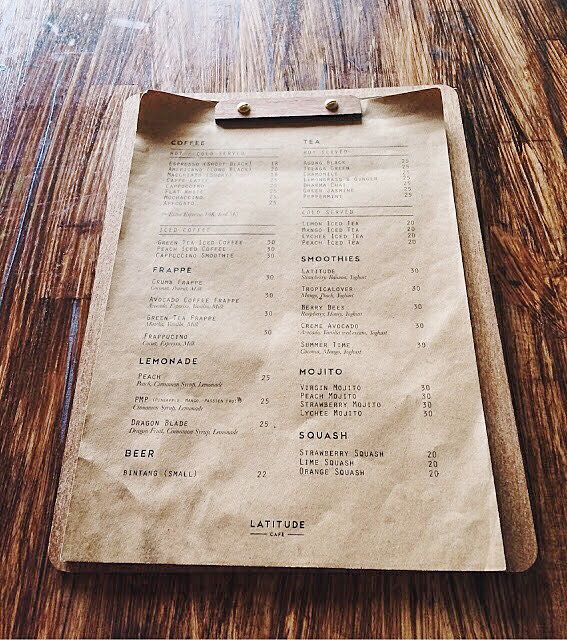 COFFEE
HOT / COLD SERVED
ESPRESSO (SHORT BLACK) 18
AMERICANO (LONG BLACK) 20
MACCHIATO (SHORT)
CAFFE LATTE
CAPPUCCINO 25
FLAT WHITE 25
MOCHACCINO 25
AFFOGATO 25
ICED COFFEE
GREEN TEA ICED COFFEE 30
PEACH ICED COFFEE 30
CAPPUCCINO SMOOTHIE 30
FRAPPE
CRUMB FRAPPE 30
AVOCADO COFFEE FRAPPE 30
Avocado, Espresso, Vanilla, Milk
GREEN TEA FRAPPE 30
Matcha, Vanilla, Milk
FRAPPUCINO 30
LEMONADE
PEACH 25
Peach, Cinnamon Syrup, Lemonade
PMP (PINEAPPLE, MANGO, PASSION FRUIT) 25
Cinnamon Syrup, Lemonade
DRAGON BLADE 25
Dragon Fruit, Cinnamon Syrup, Lemonade
BEER
BINTANG (SMALL) 22
TEA
HOT SERVED
AGUNG BLACK 25
TELAGA GREEN 25
CHAMOMILE 25
LEMONGRASS & GINGER 25
DHARMA CHAI 25
GREEN JASMINE 25
PEPPERMINT 25
COLD SERVED
LEMON ICED TEA 20
MANGO ICED TEA 20
LYCHEE ICED TEA 20
PEACH ICED TEA 20
SMOOTHIES
LATITUDE 30
Strawberry, Banana, Yoghurt
TROPICALOVER 30
Mango, Peach, Yoghurt
BERRY BEES 30
Raspberry, Honey, Yoghurt
CREME AVOCADO 30
Avocado, Vanilla icecream, Yoghurt
SUMMER TIME 30
Coconut, Mango, Yoghurt
MOJITO
VIRGIN MOJITO 30
PEACH MOJITO 30
STRAWBERRY MOJITO 30
LYCHEE MOJITO 30
SQUASH
STRAWBERRY SQUASH 20
LIME SQUASH 20
ORANGE SQUASH 20
LATITUDE
CAFE